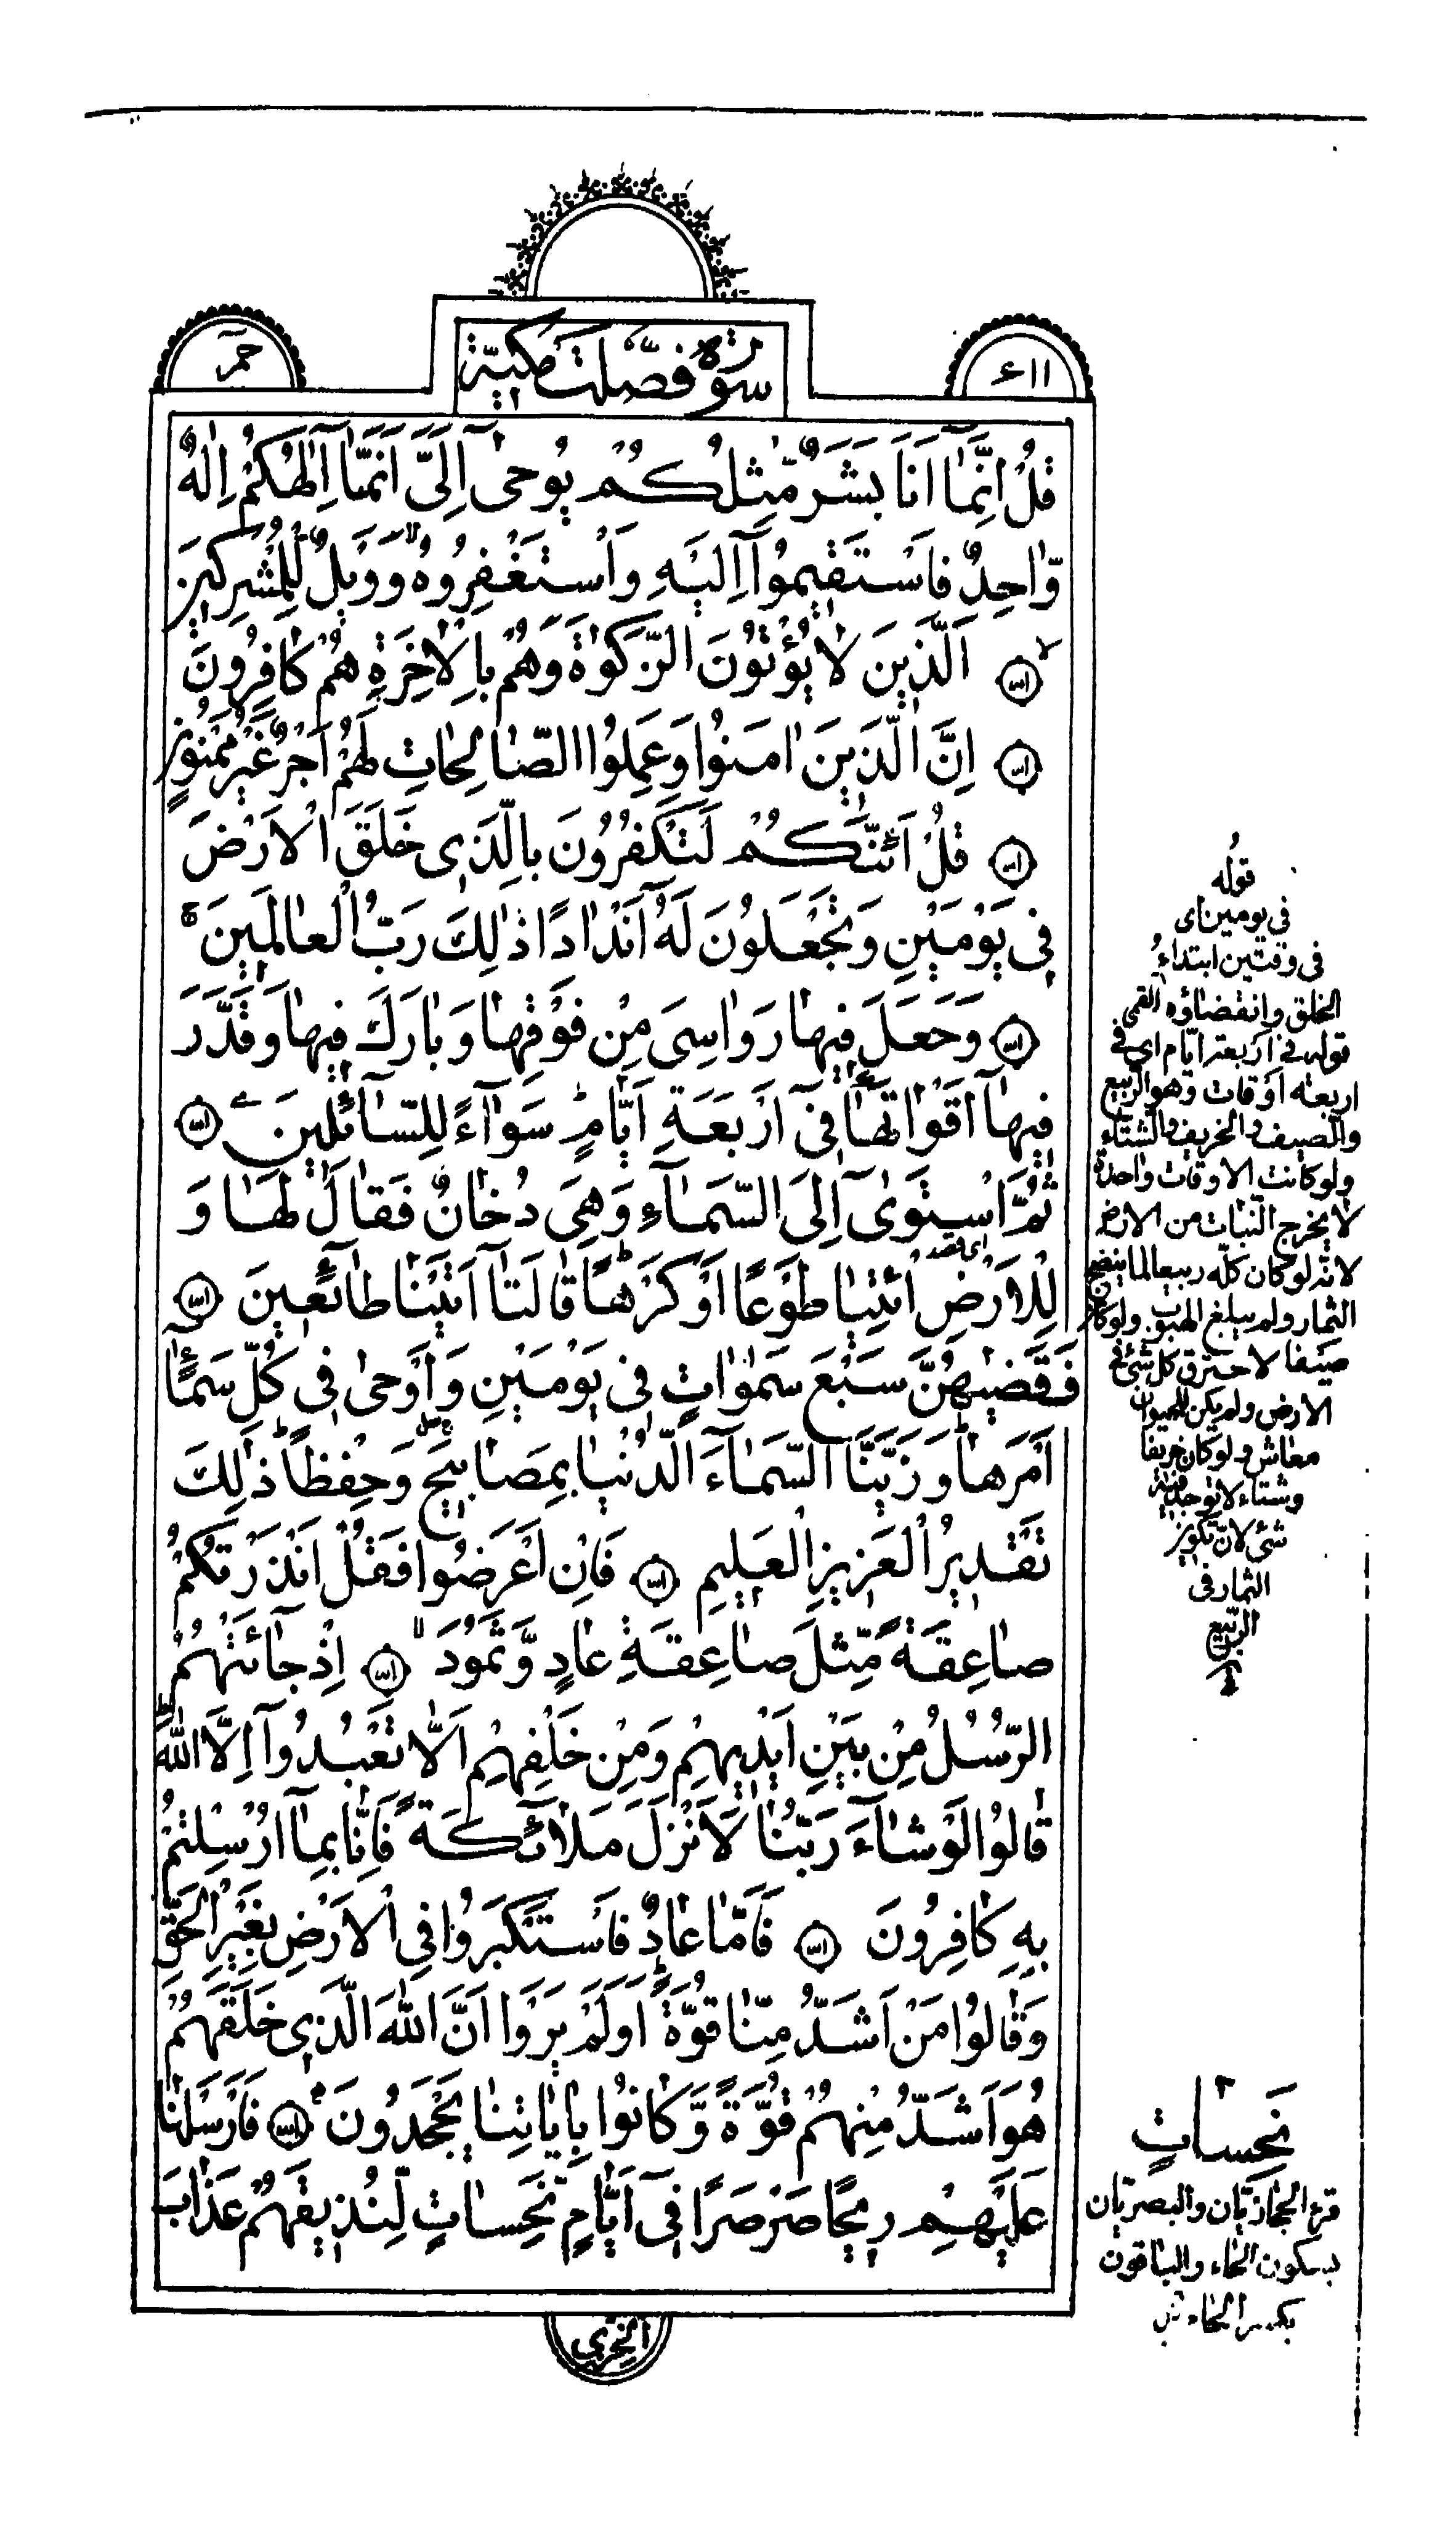 حم
سورة فصّلت مكيّة
٤١١
قُلْ اِنَّمٰا اَنَا بَشَرٌ مِّثْلُكُمْ يُوحىٰٓ اِلَيَّ اَنَّمٰٓا اِلٰهُكُمْ اِلٰهٌ
وّٰاحِدٌ فَاسْتَقيمُوٓا اِلَيْهِ وَاسْتَغْفِرُوهُ وَوَيْلٌ لِّلْمُشْرِكينَ
اَلَّذينَ لاٰ يُؤْتُونَ الزَّكٰوةَ وَهُمْ بِالْاٰخِرَةِ هُمْ كٰافِرُونَ
اِنَّ الَّذينَ اٰمَنُوا وَعَمِلُوا الصّٰالِحٰاتِ لَهُمْ اَجْرٌ غَيْرُ مَمْنُونٍ
قُلْ اَئِنَّكُمْ لَتَكْفُرُونَ بِالَّذى خَلَقَ الْاَرْضَ
فى يَوْمَيْنِ وَتَجْعَلُونَ لَهُ اَنْدٰادًا ذٰلِكَ رَبُّ الْعٰالَمينَ
وَجَعَلَ فيهٰا رَوٰاسِىَ مِنْ فَوْقِهٰا وَبٰارَكَ فيهٰا وَقَدَّرَ
فيهٰٓا اَقْوٰاتَهٰا فىٓ اَرْبَعَةِ اَيّٰامٍ سَوٰٓاءً لِلسّٰٓائِلينَ
ثُمَّ اسْتَوىٰٓ اِلَى السَّمٰٓاءِ وَهِىَ دُخٰانٌ فَقٰالَ لَهٰا وَ
لِلْاَرْضِ ائْتِيٰا طَوْعًا اَوْ كَرْهًا قٰالَتٰٓا اَتَيْنٰا طٰٓائِعينَ
فَقَضٰيهُنَّ سَبْعَ سَمٰوٰاتٍ فى يَوْمَيْنِ وَاَوْحىٰ فى كُلِّ سَمٰٓاءٍ
اَمْرَهٰا وَزَيَّنَّا السَّمٰٓاءَ الدُّنْيٰا بِمَصٰابيحَ وَحِفْظًا ذٰلِكَ
تَقْديرُ الْعَزيزِ الْعَليمِ فَاِنْ اَعْرَضُوا فَقُلْ اَنْذَرْتُكُمْ
صٰاعِقَةً مِّثْلَ صٰاعِقَةِ عٰادٍ وَّثَمُودَ اِذْ جٰٓائَتْهُمُ
الرُّسُلُ مِنْ بَيْنِ اَيْديهِمْ وَمِنْ خَلْفِهِمْ اَلّٰا تَعْبُدُوٓا اِلَّا اللّٰهَ
قٰالُوا لَوْ شٰٓاءَ رَبُّنٰا لَاَنْزَلَ مَلٰٓائِكَةً فَاِنّٰا بِمٰٓا اُرْسِلْتُمْ
بِهِ كٰافِرُونَ فَاَمّٰا عٰادٌ فَاسْتَكْبَرُوا فِى الْاَرْضِ بِغَيْرِ الْحَقِّ
وَقٰالُوا مَنْ اَشَدُّ مِنّٰا قُوَّةً اَوَلَمْ يَرَوْا اَنَّ اللّٰهَ الَّذى خَلَقَهُمْ
هُوَ اَشَدُّ مِنْهُمْ قُوَّةً وَّكٰانُوا بِاٰيٰاتِنٰا يَجْحَدُونَ فَاَرْسَلْنٰا
عَلَيْهِمْ ريحًا صَرْصَرًا فىٓ اَيّٰامٍ نَحِسٰاتٍ لِّنُذيقَهُمْ عَذٰابَ
الخزى
اى قصد
قوله
فى يومين اى
فى وقتين ابتداء
الخلق وانقضاؤه القمى
قوله فى اربعة ايّام اى فى
اربعة اوقات وهو الرّبيع
والصيف والخريف والشتاء
ولو كانت الاوقات واحدة
لا يخرج النّبات من الارض
لانّه لو كان كلّه ربيعا لما ينضج
الثمار ولم يبلغ الحبوب ولو كان
صيفا لاحترق كل شئ فى
الارض ولم يكن للحيوان
معاش ولو كان خريفا
وشتاء لا توجد فيه
شئ لانّ تكوين
الثمار فى
الرّبيع
نَحِساتٍ
قرء الحجازيّان والبصريّان
بسكون الحاء والباقون
بكسر الحاء